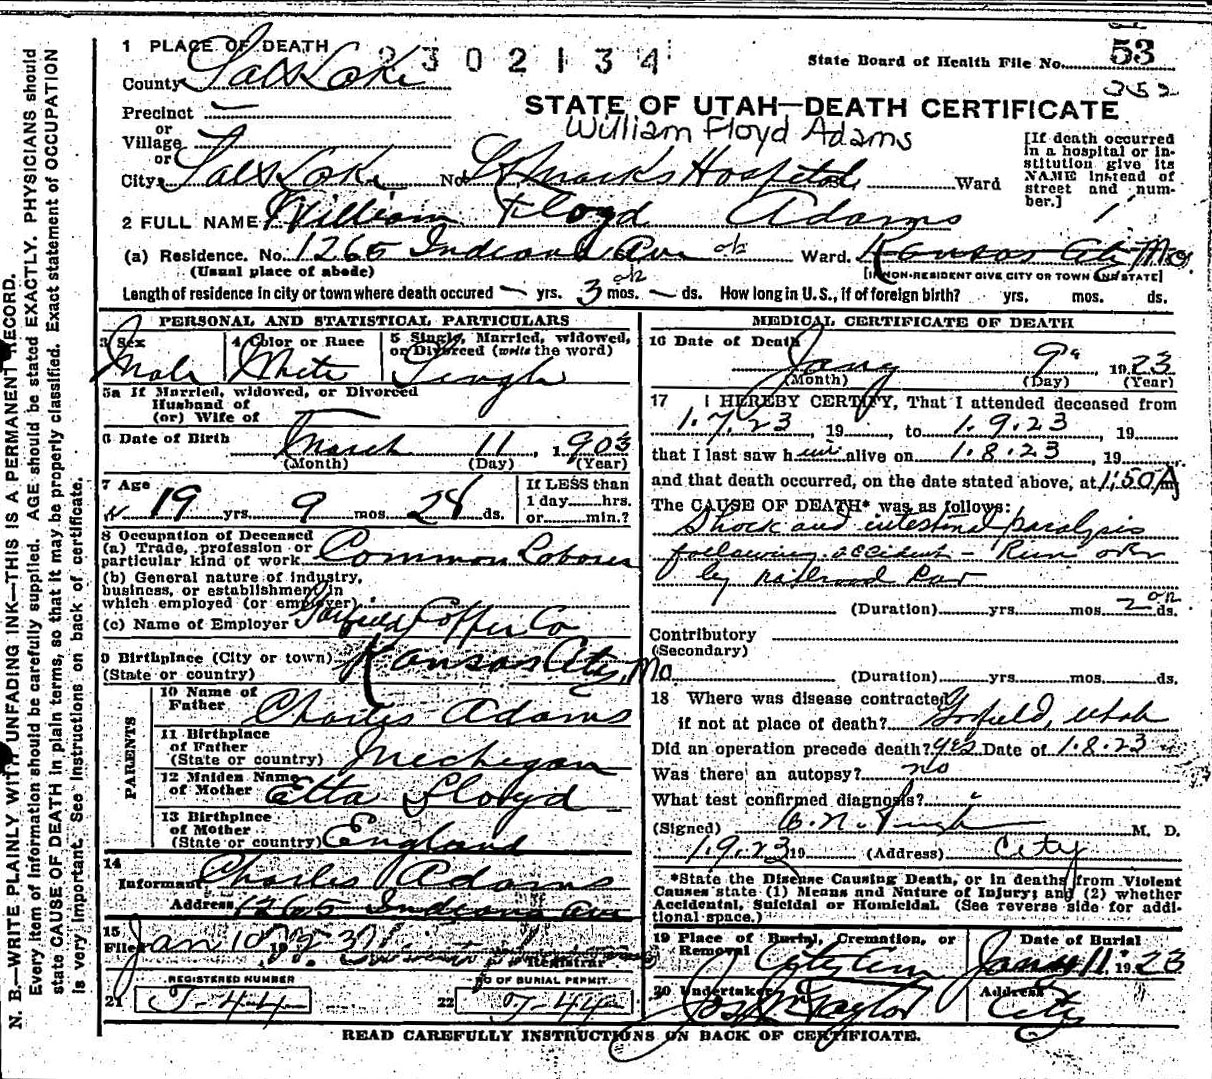 1 PLACE OF DEATH
2302134
State Board of Health File No. 53
County Salt Lake
352
STATE OF UTAH—DEATH CERTIFICATE
Precinct
William Floyd Adams
or
Village
or
City Salt Lake No. St Marks Hospital Ward
[If death occurred in a hospital or institution give its NAME instead of street and number.]
2 FULL NAME William Floyd Adams
(a) Residence. No. 1265 Indiana Ave Ward. Kansas City Mo
(Usual place of abode)
[If NON-RESIDENT GIVE CITY OR TOWN AND STATE]
Length of residence in city or town where death occured — yrs. 3 mos. — ds. How long in U.S., if of foreign birth? yrs. mos. ds.
PERSONAL AND STATISTICAL PARTICULARS
3 Sex Male
4 Color or Race White
5 Single, Married, widowed, or Divorced (write the word) Single
5a If Married, widowed, or Divorced
Husband of
(or) Wife of
6 Date of Birth March 11, 1903
(Month) (Day) (Year)
7 Age 19 yrs. 9 mos. 28 ds.
If LESS than
1 day hrs.
or min.?
8 Occupation of Deceased
(a) Trade, profession or particular kind of work Common Laborer
(b) General nature of industry, business, or establishment in which employed (or employer)
(c) Name of Employer Garfield Copper Co
9 Birthplace (City or town) Kansas City, Mo
(State or country)
PARENTS
10 Name of Father Charles Adams
11 Birthplace of Father (State or country) Mechegan
12 Maiden Name of Mother Etta Floyd
13 Birthplace of Mother (State or country) England
14 Informant Charles Adams
Address 1265 Indiana Ave
15 Filed Jan 10 1923
Registrar
REGISTERED NUMBER
21 J-44
NO OF BURIAL PERMIT
22 J-44
MEDICAL CERTIFICATE OF DEATH
16 Date of Death Jany 9" 1923
(Month) (Day) (Year)
17 I HEREBY CERTIFY, That I attended deceased from
1.7.23, 19, to 1.9.23, 19
that I last saw him alive on 1.8.23, 19
and that death occurred, on the date stated above, at 1:50 A m
The CAUSE OF DEATH* was as follows:
Shock and intestinal paralysis
following accident - Run over
by railroad car
(Duration) yrs. mos. 2 ds.
Contributory
(Secondary)
(Duration) yrs. mos. ds.
18 Where was disease contracted
if not at place of death? Garfield, Utah
Did an operation precede death? yes Date of 1.8.23
Was there an autopsy? no
What test confirmed diagnosis?
(Signed) B.N. Pugh M. D.
1.9.23 19 (Address) City
*State the Disease Causing Death, or in deaths from Violent
Causes state (1) Means and Nature of Injury; and (2) whether
Accidental, Suicidal or Homicidal. (See reverse side for additional space.)
19 Place of Burial, Cremation, or Removal City Cem
Date of Burial Jany 11 1923
20 Undertaker Jos Wm Taylor
Address City
READ CAREFULLY INSTRUCTIONS ON BACK OF CERTIFICATE.
N. B.—WRITE PLAINLY WITH UNFADING INK—THIS IS A PERMANENT RECORD.
Every item of information should be carefully supplied. AGE should be stated EXACTLY. PHYSICIANS should
state CAUSE OF DEATH in plain terms, so that it may be properly classified. Exact statement of OCCUPATION
is very important. See instructions on back of certificate.